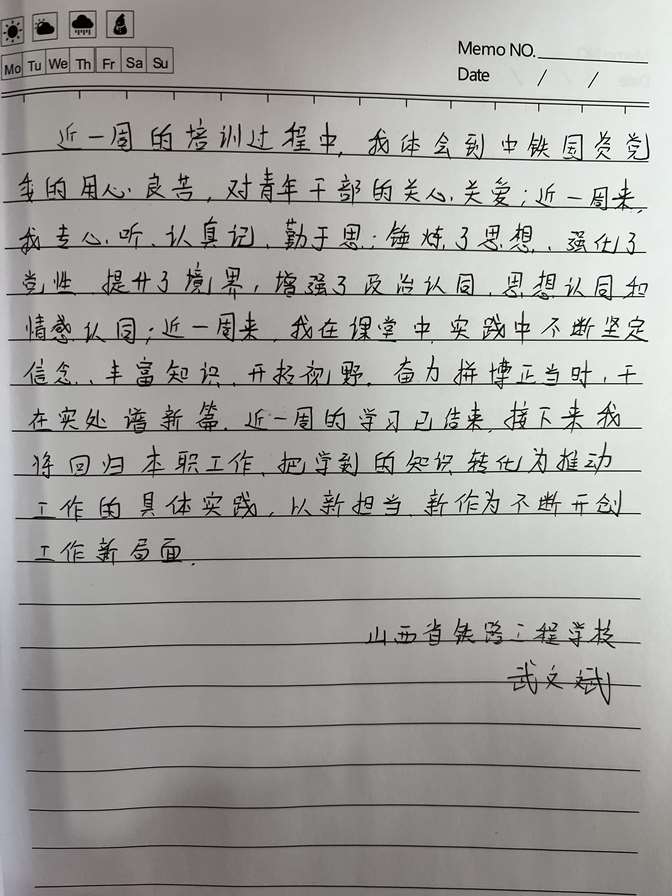 Memo NO.
Mo Tu We Th Fr Sa Su
Date / /
近一周的培训过程中,我体会到中铁国资党
委的用心良苦,对青年干部的关心、关爱;近一周来,
我专心听、认真记、勤于思;锤炼了思想、强化了
党性、提升了境界,增强了政治认同、思想认同和
情感认同;近一周来,我在课堂中、实践中不断坚定
信念、丰富知识、开拓视野。奋力拼搏正当时,干
在实处谱新篇。近一周的学习已结束,接下来我
将回归本职工作、把学到的知识转化为推动
工作的具体实践,以新担当、新作为不断开创
工作新局面。
山西省铁路工程学校
武文斌